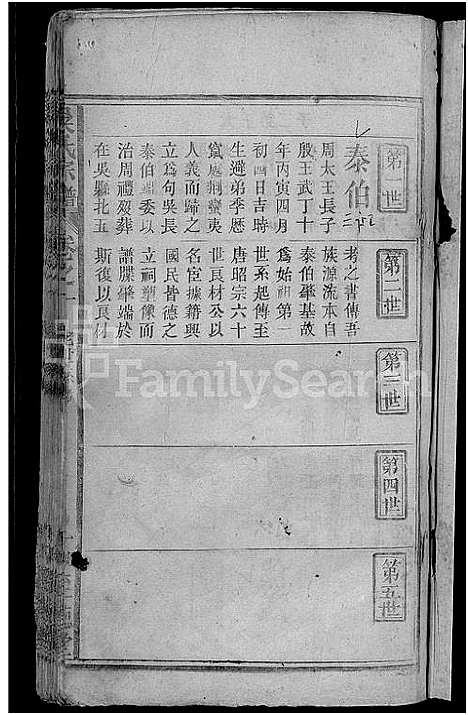 第一世
泰伯
周太王長子
殷王武丁十
年丙寅四月
初四日吉時
生遜弟季歷
竄處荊蠻夷
人義而歸之
立為句吳長
泰伯端委以
治周禮歿葬
在吳縣北五
第二世
考之書傳吾
族源流本自
泰伯肇基故
爲始祖第一
世系起傳至
唐昭宗六十
世良材公以
名宦據籍興
國民皆德之
立祠塑像而
譜牒肇端於
斯復以良材
第三世
第四世
第五世
氏宗譜
FamilySearch